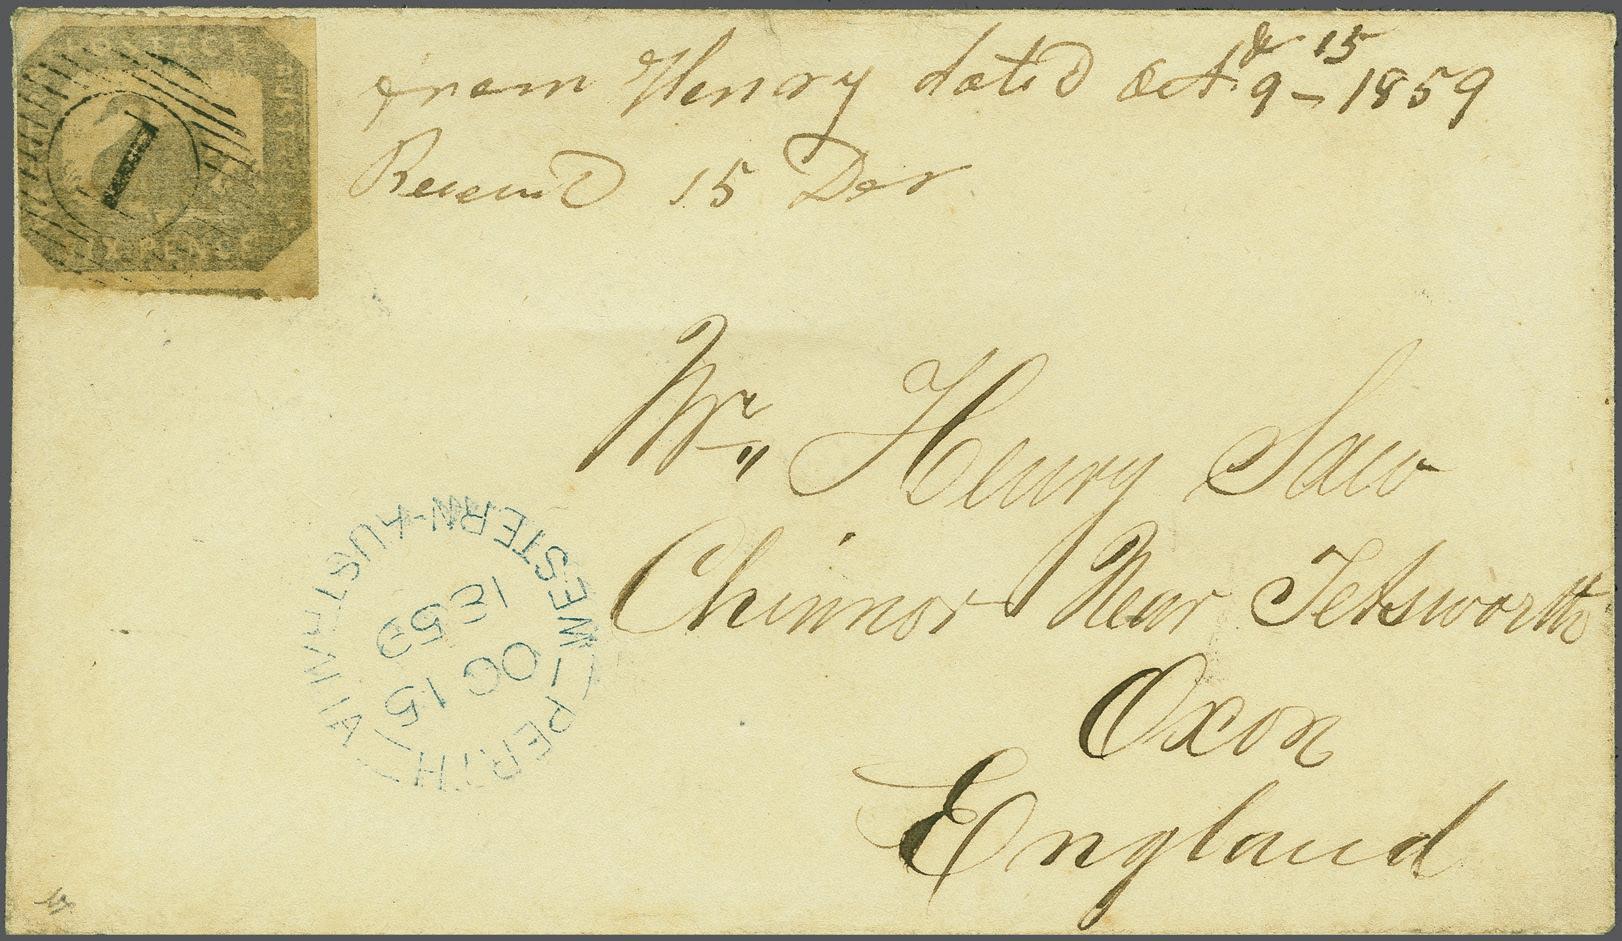 POSTAGE
SIX PENCE
1
from Henry dated Oct 9 - & 15 1859
Receivd 15 Der
Mr. Henry Saw
Chinnor Near Tetsworth
Oxon
England
WESTERN-AUSTRALIA
PERTH
OC 15
1859